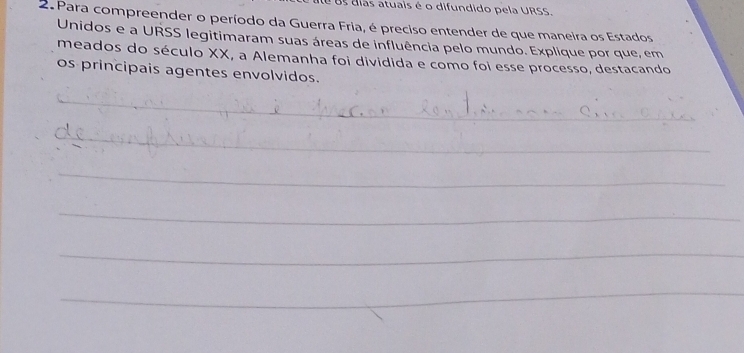 até os dias atuais é o difundido pela URSS.
2. Para compreender o período da Guerra Fria, é preciso entender de que maneira os Estados
Unidos e a URSS legitimaram suas áreas de influência pelo mundo. Explique por que, em
meados do século XX, a Alemanha foi dividida e como foi esse processo, destacando
os principais agentes envolvidos.
de